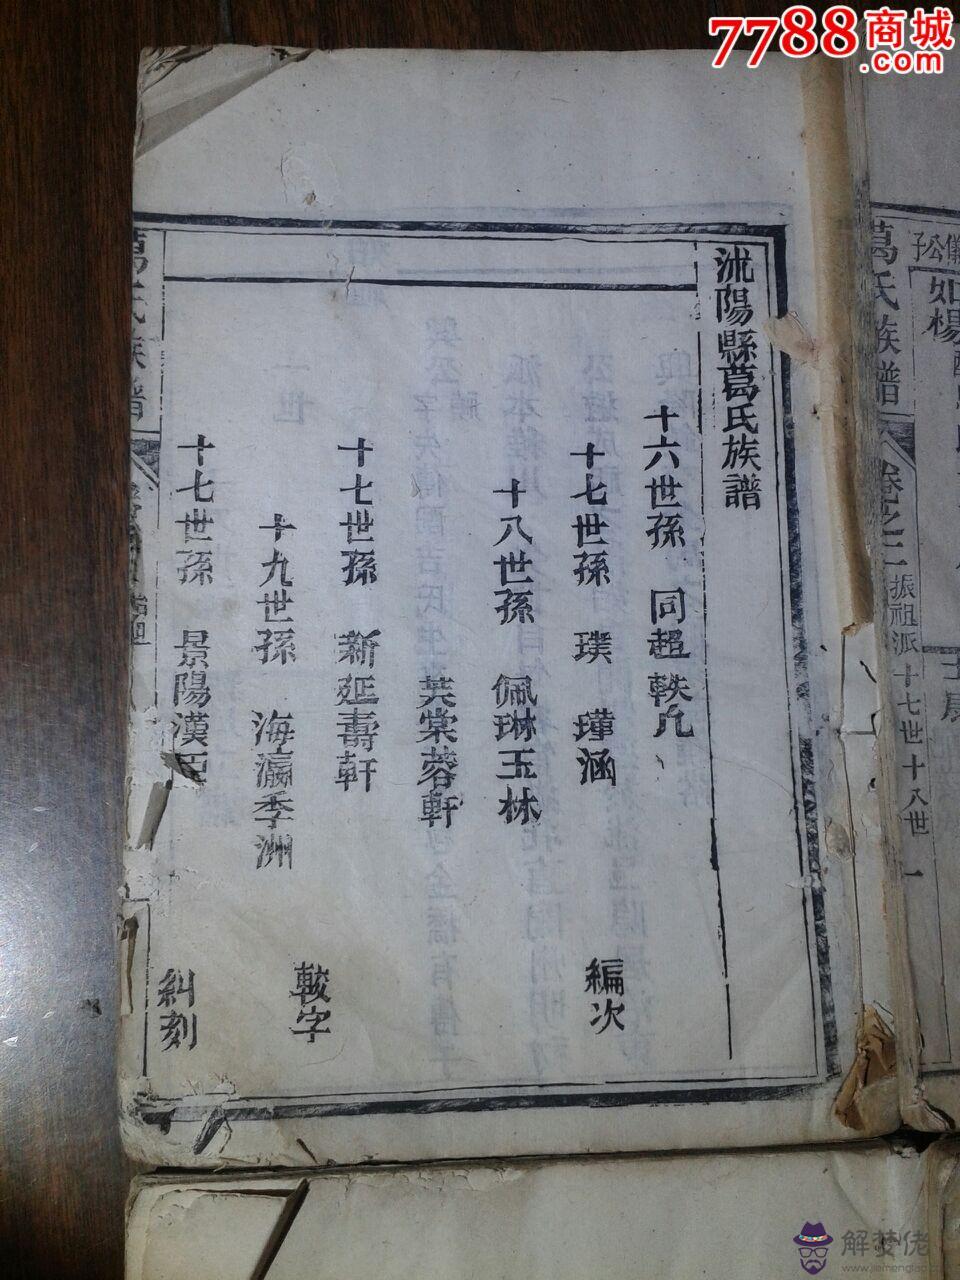 7788商城
沭陽縣葛氏族譜
十六世孫 同超軼凡
十七世孫 璞 瑾涵
十八世孫 佩琳玉林
編次
芙棠蓉軒
十七世孫 新延壽軒
十九世孫 海瀛季洲
較字
十七世孫 景陽漢
糾刻
葛氏族譜
卷之二
振祖派
十七世十八世
一
公子
如楊
解梦佬
www.jiemenglao.com